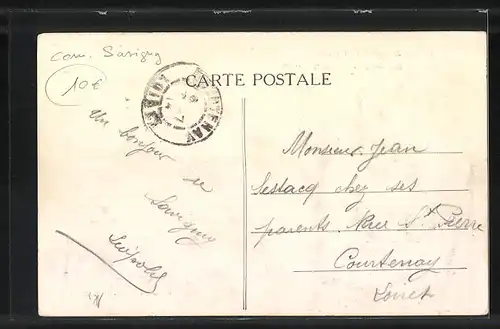 com. Savigny
10€
CARTE POSTALE
COURTENAY
LOIRET
Un bonjour
de
Savigny
Léopold
Monsieur Jean
Lestacq chez ses
parents Rue St Pierre
Courtenay
Loiret